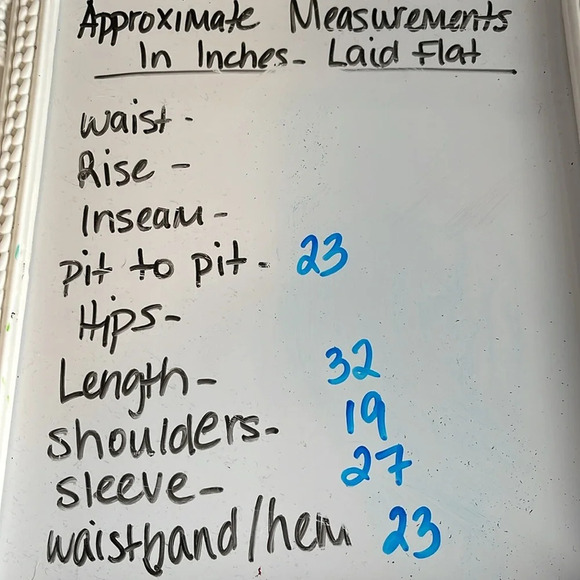 Approximate Measurements
In Inches- Laid Flat
waist -
Rise -
Inseam -
pit to pit - 23
Hips -
Length - 32
shoulders - 19
sleeve - 27
waistband/hem 23